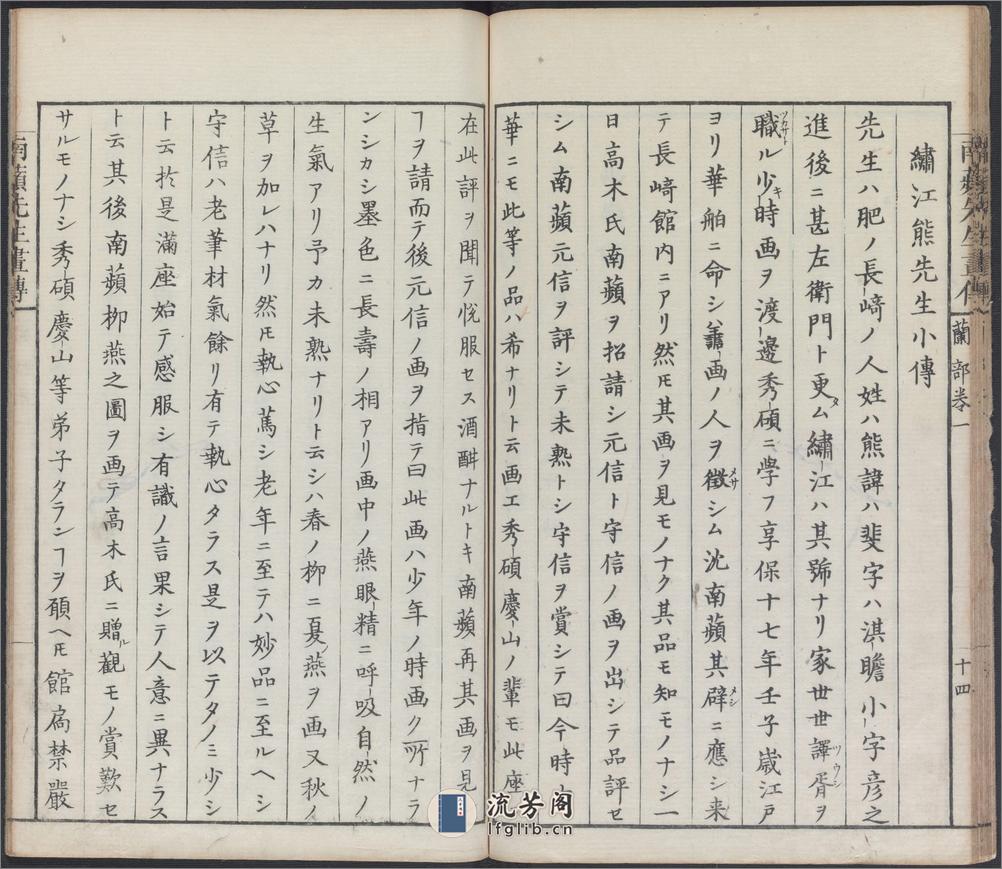 南蘋先生畫傳 蘭部卷一 十四
繡江熊先生小傳
先生ハ肥ノ長﨑ノ人姓ハ熊諱ハ斐字ハ淇瞻小字彦之
進後ニ甚左衛門ト更ム繡江ハ其號ナリ家世世譯胥ヲ
職ル少時画ヲ渡邊秀碩ニ學フ享保十七年壬子歳江戸
ヨリ華舶ニ命シ善画ノ人ヲ徴シム沈南蘋其辟ニ應シ来
テ長﨑館内ニアリ然𪜈其画ヲ見モノナク其品モ知モノナシ一
日高木氏南蘋ヲ招請シ元信ト守信ノ画ヲ出シテ品評セ
シム南蘋元信ヲ評シテ未熟トシ守信ヲ賞シテ曰今時
華ニモ此等ノ品ハ希ナリト云画工秀碩慶山ノ輩モ此座
在此評ヲ聞テ悦服セス酒酣ナルトキ南蘋再其画ヲ見
ヿヲ請而テ後元信ノ画ヲ指テ曰此画ハ少年ノ時画ク所ナラ
ンシカシ墨色ニ長壽ノ相アリ画中ノ燕眼精ニ呼吸自然ノ
生氣アリ予カ未熟ナリト云シハ春ノ柳ニ夏燕ヲ画又秋ノ
草ヲ加レハナリ然𪜈執心篤シ老年ニ至テハ妙品ニ至ルヘシ
守信ハ老筆材氣餘リ有テ執心タラス是ヲ以テタノミ少シ
ト云於是滿座始テ感服シ有識ノ言果シテ人意ニ異ナラス
ト云其後南蘋柳燕之圖ヲ画テ高木氏ニ贈ル觀モノ賞歎セ
サルモノナシ秀碩慶山等弟子タランヿヲ願ヘ𪜈館扄禁嚴
南蘋先生畫傳
流芳阁
lfglib.cn